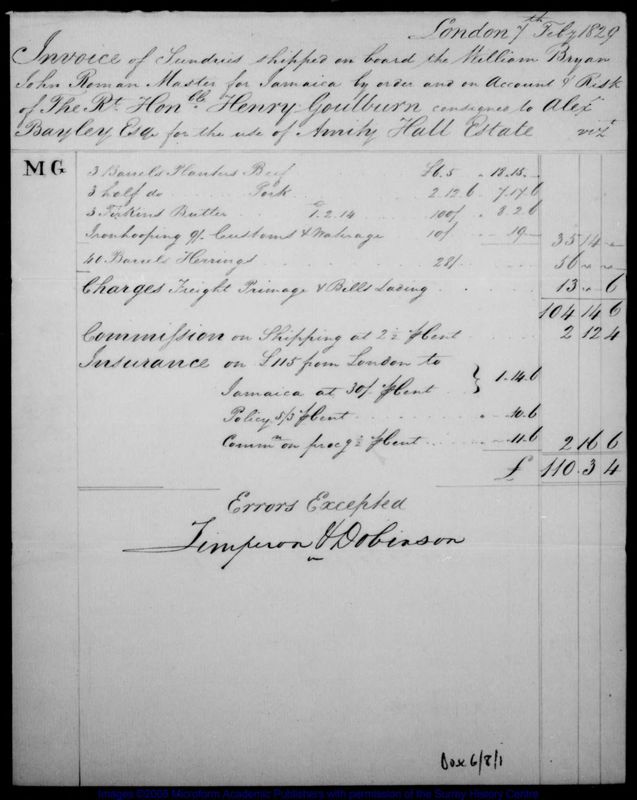 London 7th Feby 1829
Invoice of Sundries shipped on board the William Bryan
John Roman Master for Jamaica by order and on Account & Risk
of The Rt. Honble Henry Goulburn consigned to Alexr
Bayley Esqe for the use of Amity Hall Estate vizt
MG 3 Barrels Planters Beef £6.5 18.15.
3 half do Pork 2.12.6 7.17.6
3 Firkins Butter 1.2.14 100/ 8.2.6
Ironhooping 9/. Customs & Waterage 10/ 19 35 14
40 Barrels Herrings 28/ 56
Charges Freight Primage & Bills Lading 13 6
104 14 6
Commission on Shipping at 2½ ⅌Cent 2 12 4
Insurance on £115 from London to
Jamaica at 30/ ⅌Cent } 1.14.6
Policy 5/5 ⅌Cent 10.6
Commn on procg ½ ⅌Cent 11.6 2 16 6
£ 110.3 4
Errors Excepted
Timperon & Dobinson
Box 6/8/1
Images ©2006 Microform Academic Publishers with permission of the Surrey History Centre